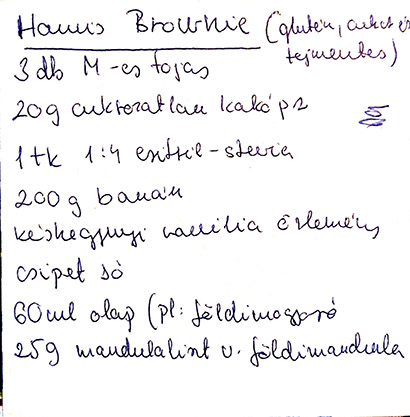 Hamis Brownie (glutén, cukor és
tejmentes)
3 db M-es tojás
20g cukrozatlan kakó pz
1 tk 1:4 eritrit-stevia
200g banán
késhegynyi vanília őrlemény
csipet só
60ml olaj (pl: földimogyoró
25g mandulaliszt v. földimandula